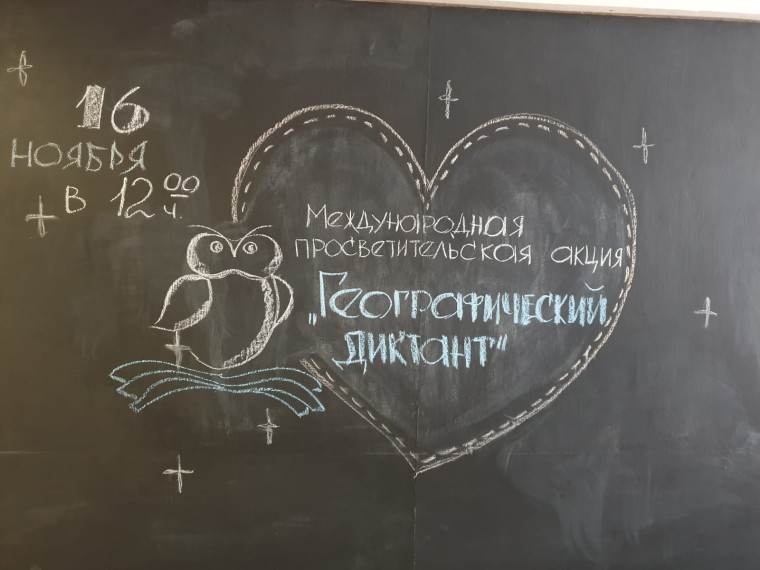 16
НОЯБРЯ
В 12 00 ч.
Международная
просветительская акция
„Географический
диктант"